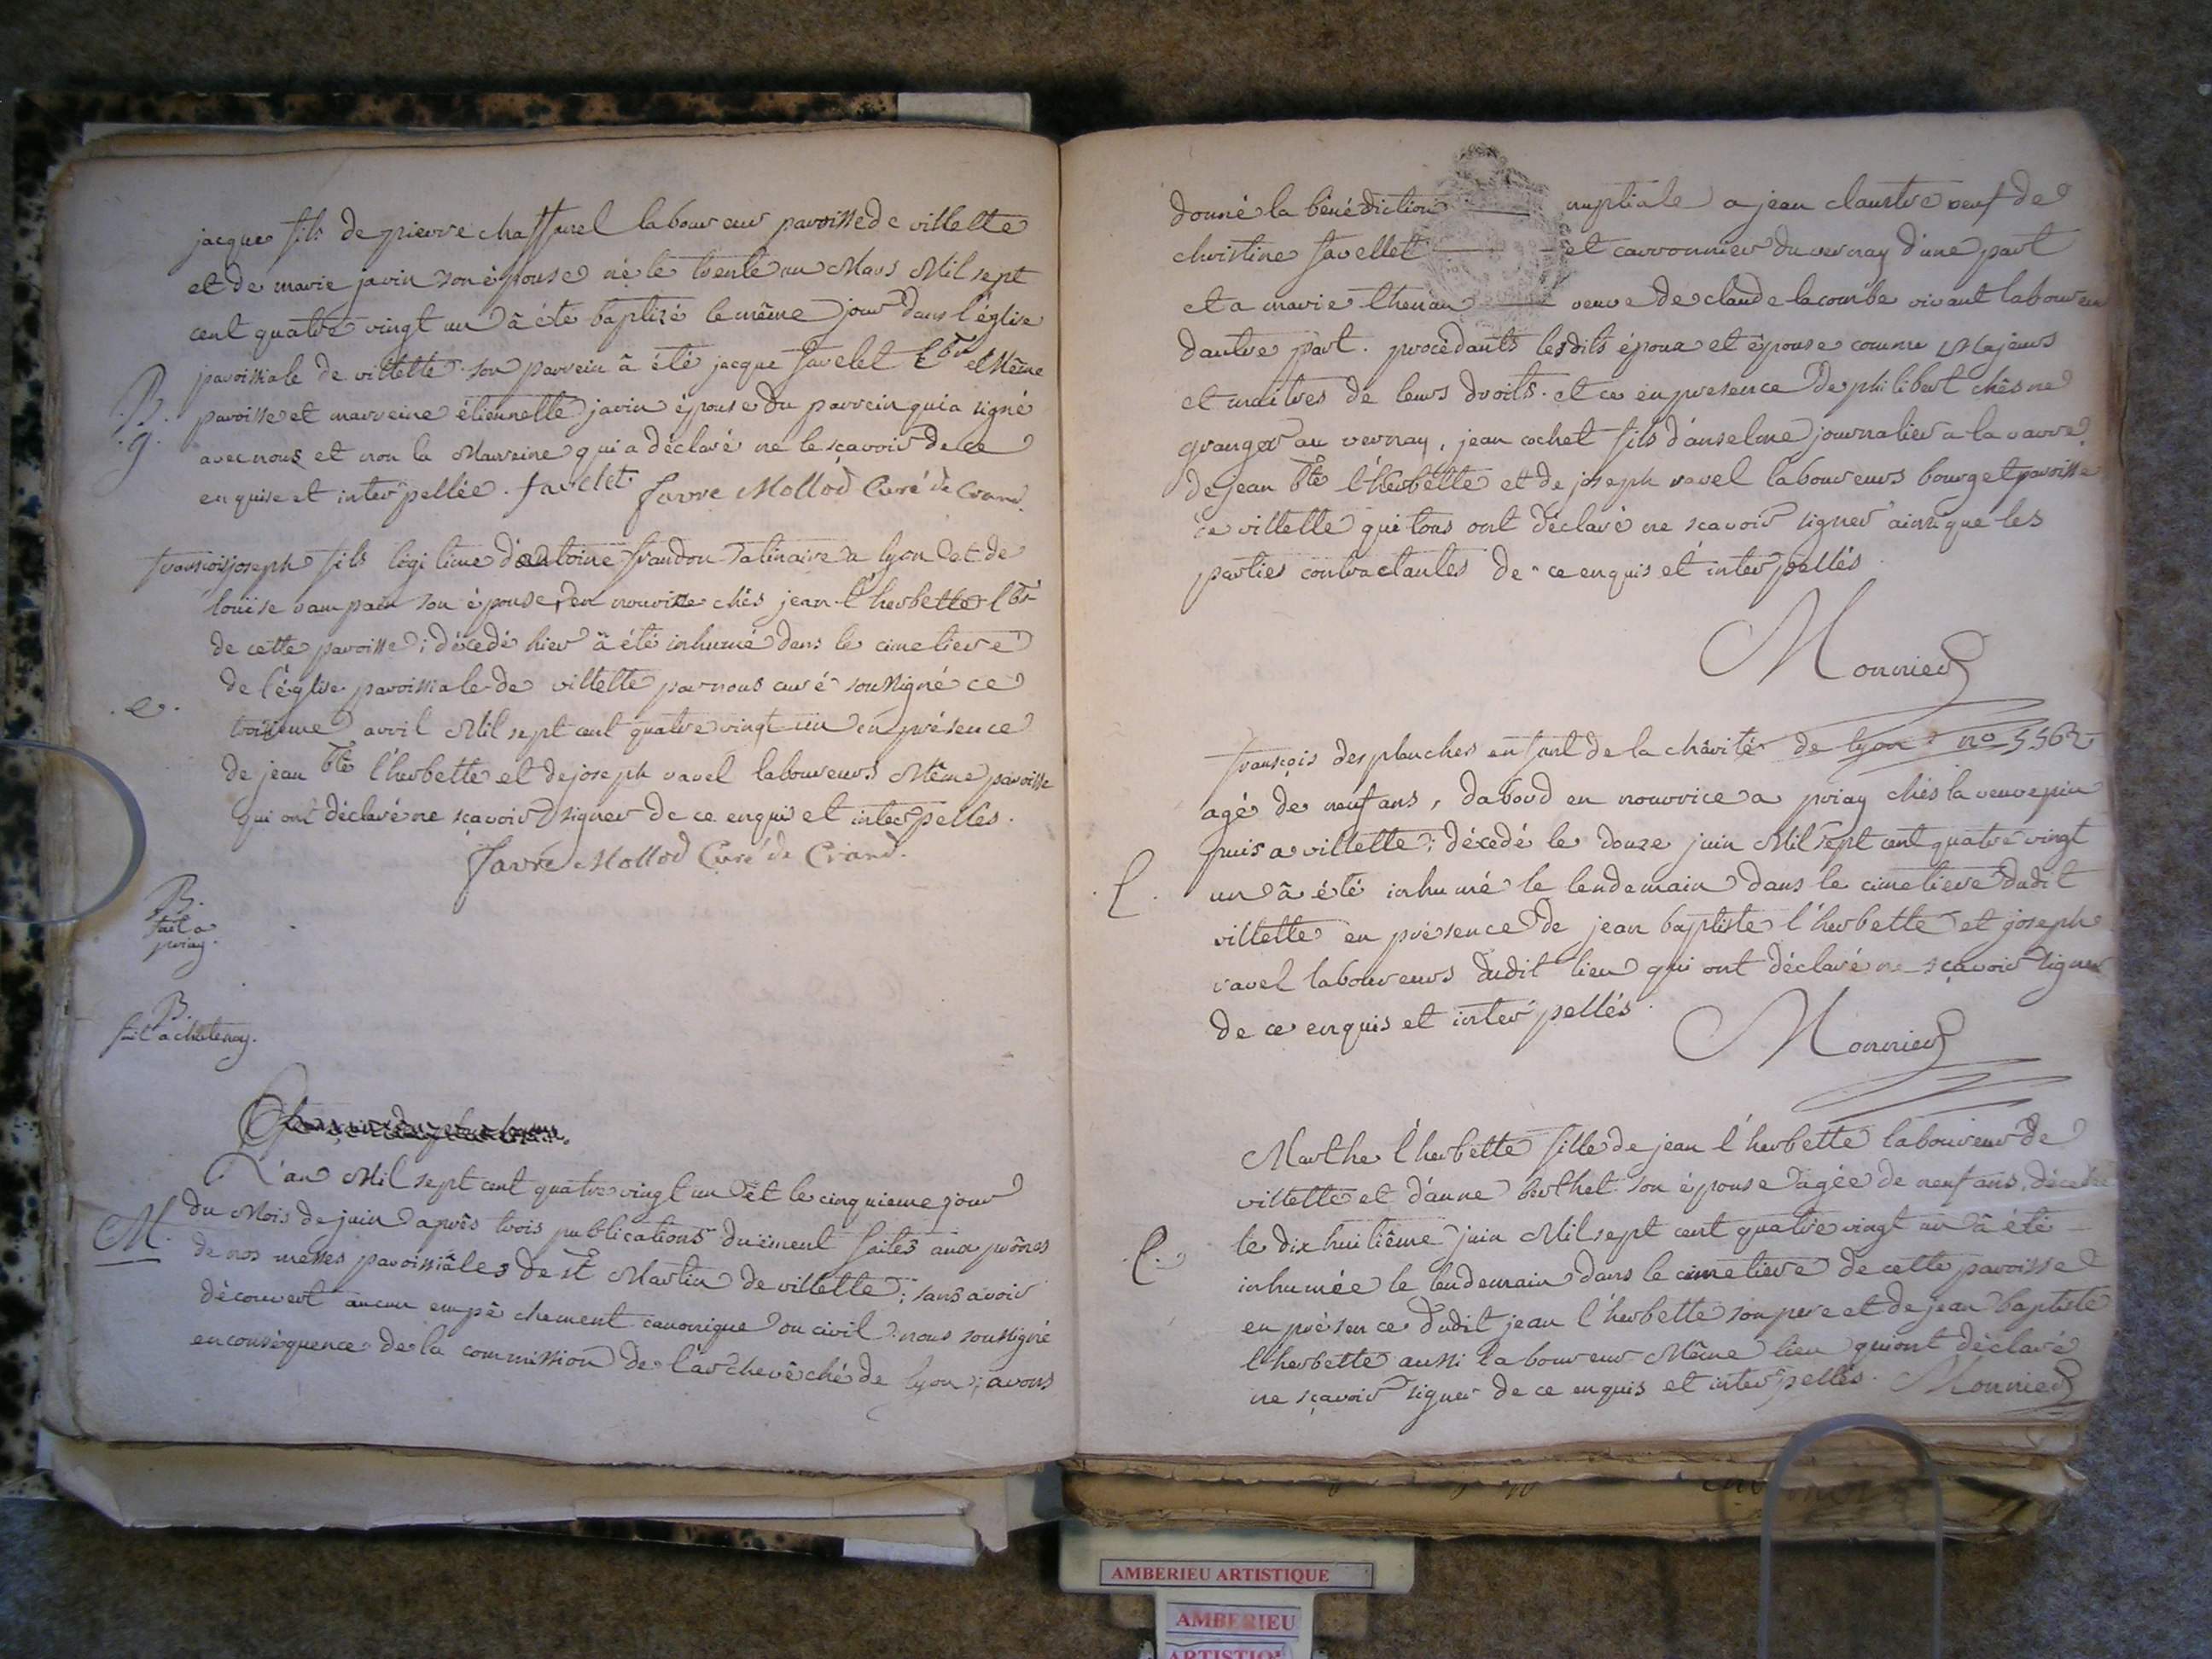 jacque fils de pierre chaffurel laboureur paroisse de villette
et de marie javin son épouse né le trente un Mars Mil sept
cent quatre vingt un â été baptizé le même jour dans l'église
paroissiale de villette son parrein â été jacque favelet l^br et Même
B. g.
paroisse et marreine étiennette javin épouse du parrein qui a signé
avec nous et non la Marreine qui a déclaré ne le sçavoir de ce
enquise et interpellée. favelet favre Mollod Curé de Crand.
françois joseph fils légitime d'antoine frandon satinaire a lyon et de
louise son épouse, en nourisse chés jean l'herbette l^br
de cette paroisse; décédé hier â été inhumé dans le cimetiere
de l'église paroissiale de villette par nous curé soussigné ce
.e.
troisieme avril Mil sept cent quatre vingt un en présence
de jean bte l'herbette et de joseph ravel laboureurs Même paroisse
qui ont déclaré ne sçavoir signer de ce enquis et interpellés.
favre Mollod Curé de Crand.
B.
fait a
priay.
B.
fait a chatenay.
L'an Mil sept cent quatre vingt un et le cinquieme jour
M.
du Mois de juin après trois publications duëment faites aux prônes
de nos messes paroissiâles de st Martin de villette; sans avoir
découvert aucun empêchement canonique ou civil: nous soussigné
en conséquence de la commission de l'archevêché de lyon; avons
donné la bénédiction nuptiale a jean claustre veuf de
christine favellet et carronnier du vernay d'une part
et a marie thenan veuve de claude lacombe vivant laboureur
dautre part. procédants lesdits époux et épouse comme Majeurs
et maitres de leurs droits. et ce en presence de philibert chêsne
granger au vernay, jean cochet fils d'anselme journalier a la vavre,
de jean bte l'herbette et de joseph ravel laboureurs bourg et paroisse
de villette qui tous ont déclaré ne scavoir signer ainsi que les
parties contractantes de ce enquis et interpellés.
Monnier
françois desplanches enfant de la châvité de lyon n° 5562
agé de neuf ans, dabord en nourrice a priay chés la veuve pin
puis a villette; décedé le douze juin Mil sept cent quatre vingt
.C.
un â été inhumé le lendemain dans le cimetiere dudit
villette en présence de jean baptiste l'herbette et joseph
ravel laboureurs dudit lieu qui ont déclaré ne sçavoir signer
de ce enquis et interpellés.
Monnier
Marthe l'herbette fille de jean l'herbette laboureur de
villette et d'anne berthet son épouse agée de neuf ans, décedée
le dix huitiême juin Mil sept cent quatre vingt un â été
.C.
inhumée le lendemain dans le cimetiere de cette paroisse
en présence dudit jean l'herbette son pere et de jean baptiste
l'herbette aussi laboureur Même lieu qui ont déclaré
ne sçavoir signer de ce enquis et interpellés. Monnier
AMBERIEU ARTISTIQUE
AMBERIEU
ARTISTIQUE